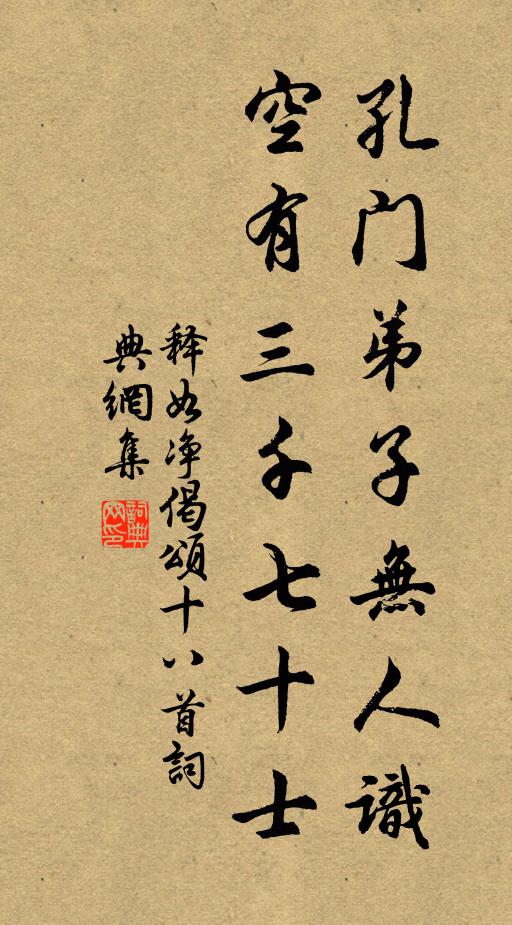 孔门弟子無人識
空有三千七十士
释如净偈頌十八首詞
典網集
詞典
网印